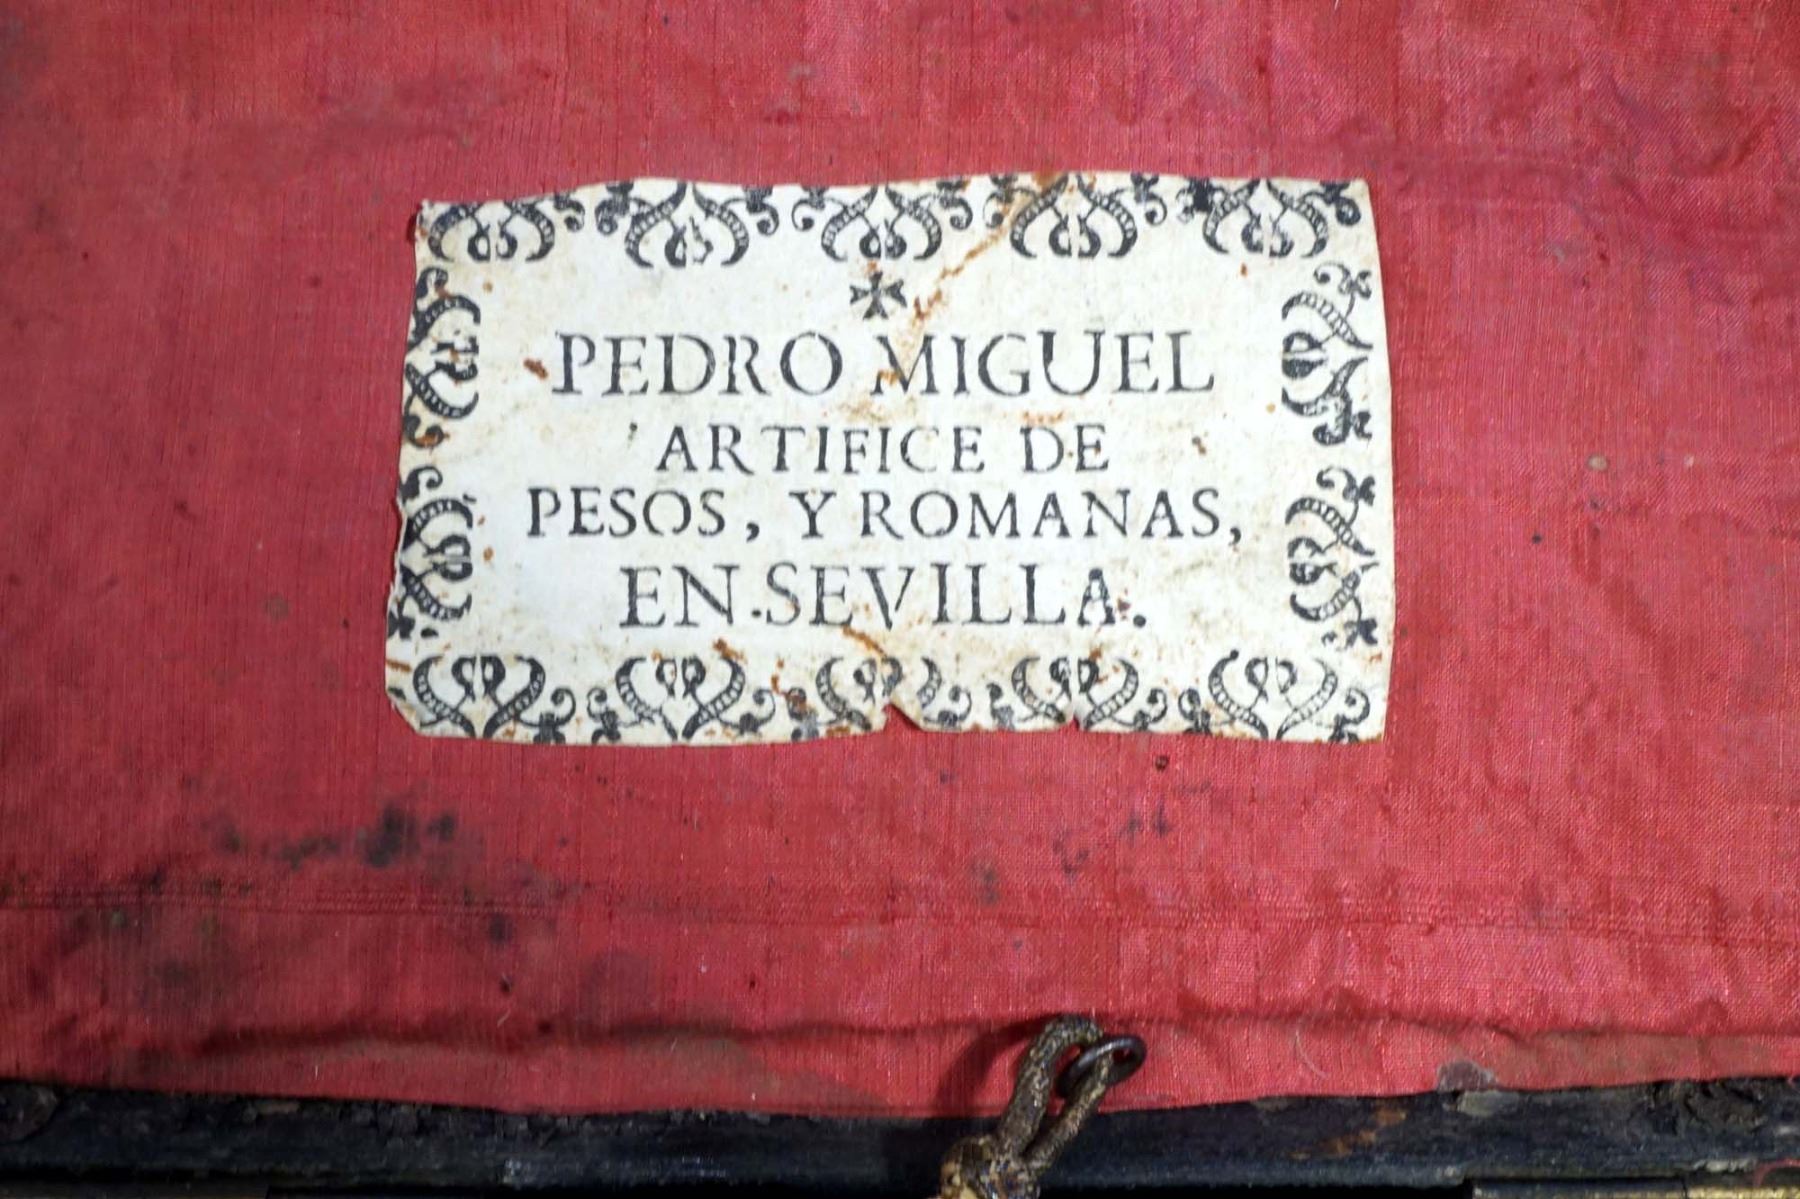 PEDRO MIGUEL
ARTIFICE DE
PESOS, Y ROMANAS,
EN SEVILLA.